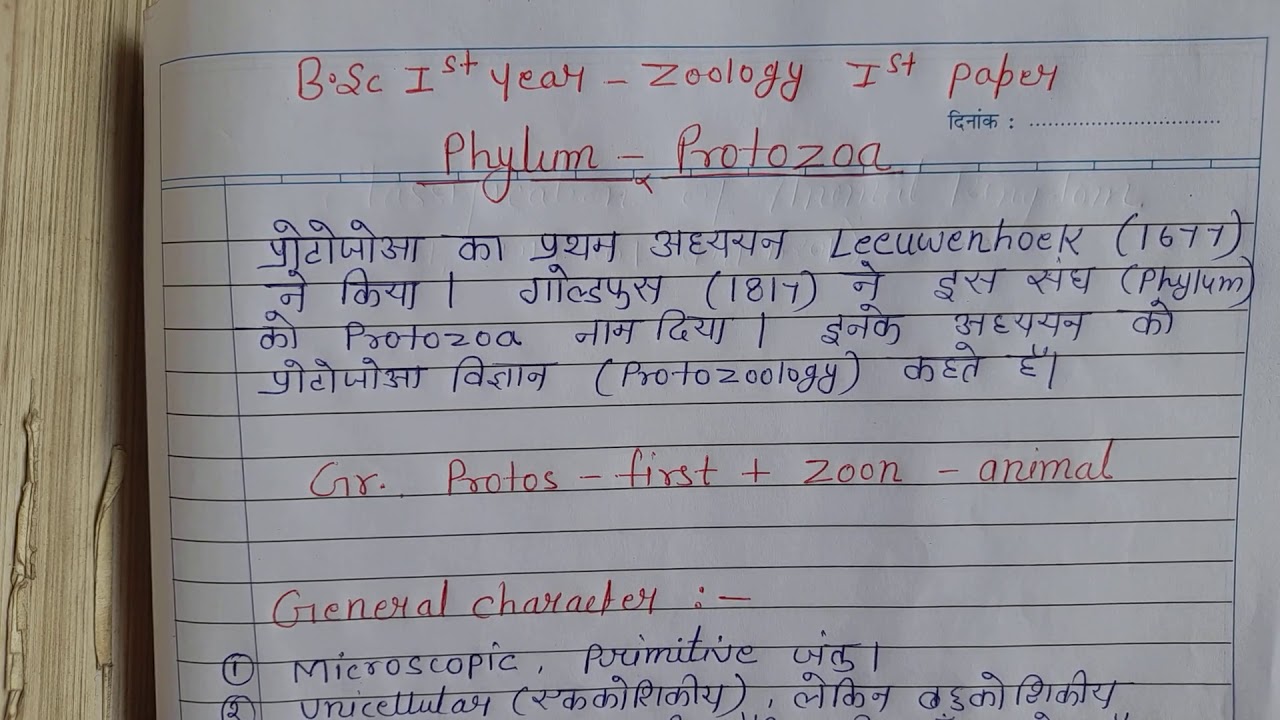 B.Sc Ist year - Zoology Ist paper
दिनांक : ................................
Phylum - Protozoa
प्रोटोजोआ का प्रथम अध्ययन Leeuwenhoek (1677)
ने किया। गोल्डफुस (1817) ने इस संघ (Phylum)
को Protozoa नाम दिया। इनके अध्ययन को
प्रोटोजोआ विज्ञान (Protozoology) कहते हैं।
Gr. Protos - first + zoon - animal
General character :-
① Microscopic, Primitive जंतु।
② Unicellular (एककोशिकीय), लेकिन बहुकोशिकीय